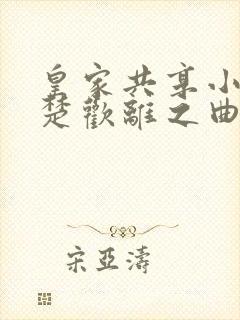 皇家共享小
楚歡離之曲
宋亞濤